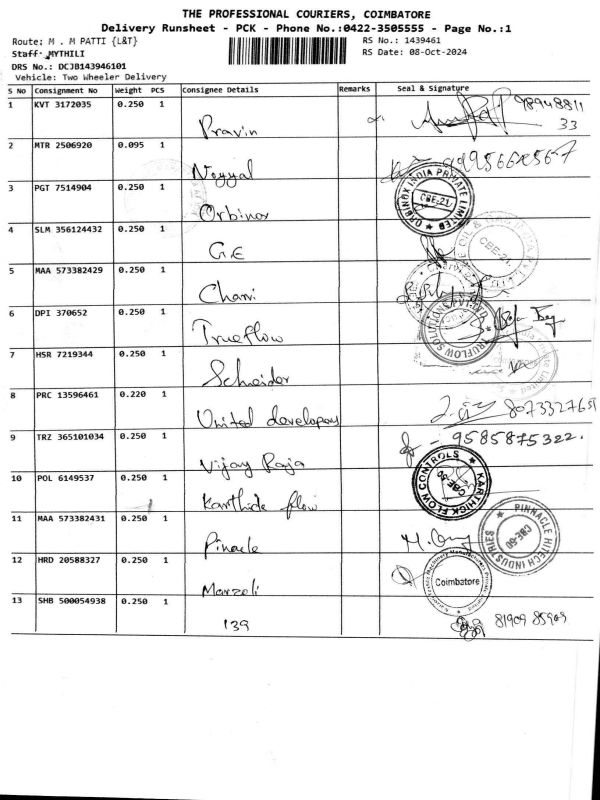 THE PROFESSIONAL COURIERS, COIMBATORE
Delivery Runsheet - PCK - Phone No.:0422-3505555 - Page No.:1
Route: M . M PATTI {L&T} RS No.: 1439461
Staff: MYTHILI RS Date: 08-Oct-2024
DRS No.: DCJB143946101
Vehicle: Two Wheeler Delivery
S No Consignment No Weight PCS Consignee Details Remarks Seal & Signature
1 KVT 3172035 0.250 1 Pravin 9894881133
2 MTR 2506920 0.095 1 Noyyal
3 PGT 7514904 0.250 1 Orbinox ORBINOX INDIA PRIVATE LIMITED CBE-21
4 SLM 356124432 0.250 1 GE CBE-21
5 MAA 573382429 0.250 1
6 DPI 370652 0.250 1 Trueflow
7 HSR 7219344 0.250 1 Schneider
8 PRC 13596461 0.220 1 United developers
9 TRZ 365101034 0.250 1 Vijay Raja 9585875322.
10 POL 6149537 0.250 1 Karthick flow KARTHICK FLOW CONTROLS CBE-50
11 MAA 573382431 0.250 1 Pinacle PINNACLE HITECH INDUSTRIES CBE-50
12 HRD 20588327 0.250 1 Marzoli Coimbatore
13 SHB 500054938 0.250 1 139 81909 85909